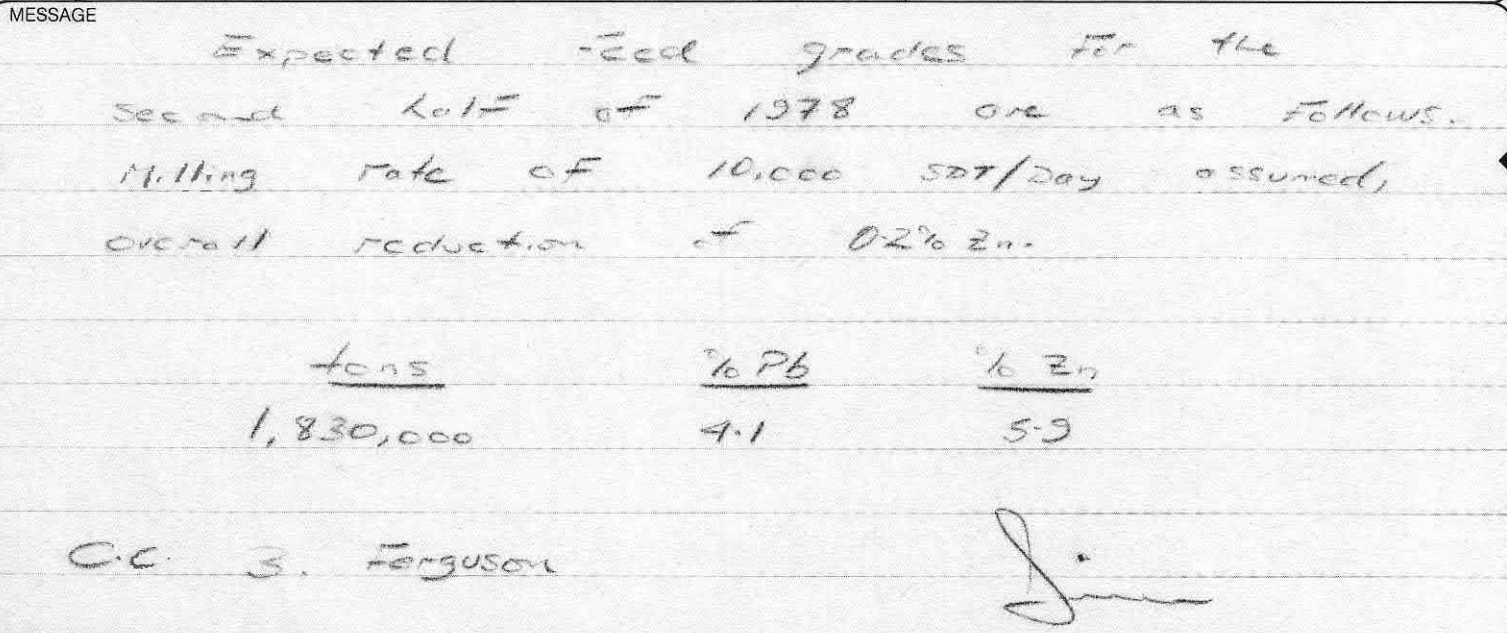 MESSAGE
Expected feed grades for the
second half of 1978 are as follows.
Milling rate of 10,000 SDT/Day assumed,
overall reduction of 0.2% Zn.
tons % Pb % Zn
1,830,000 4.1 5.9
C.C. B. Ferguson